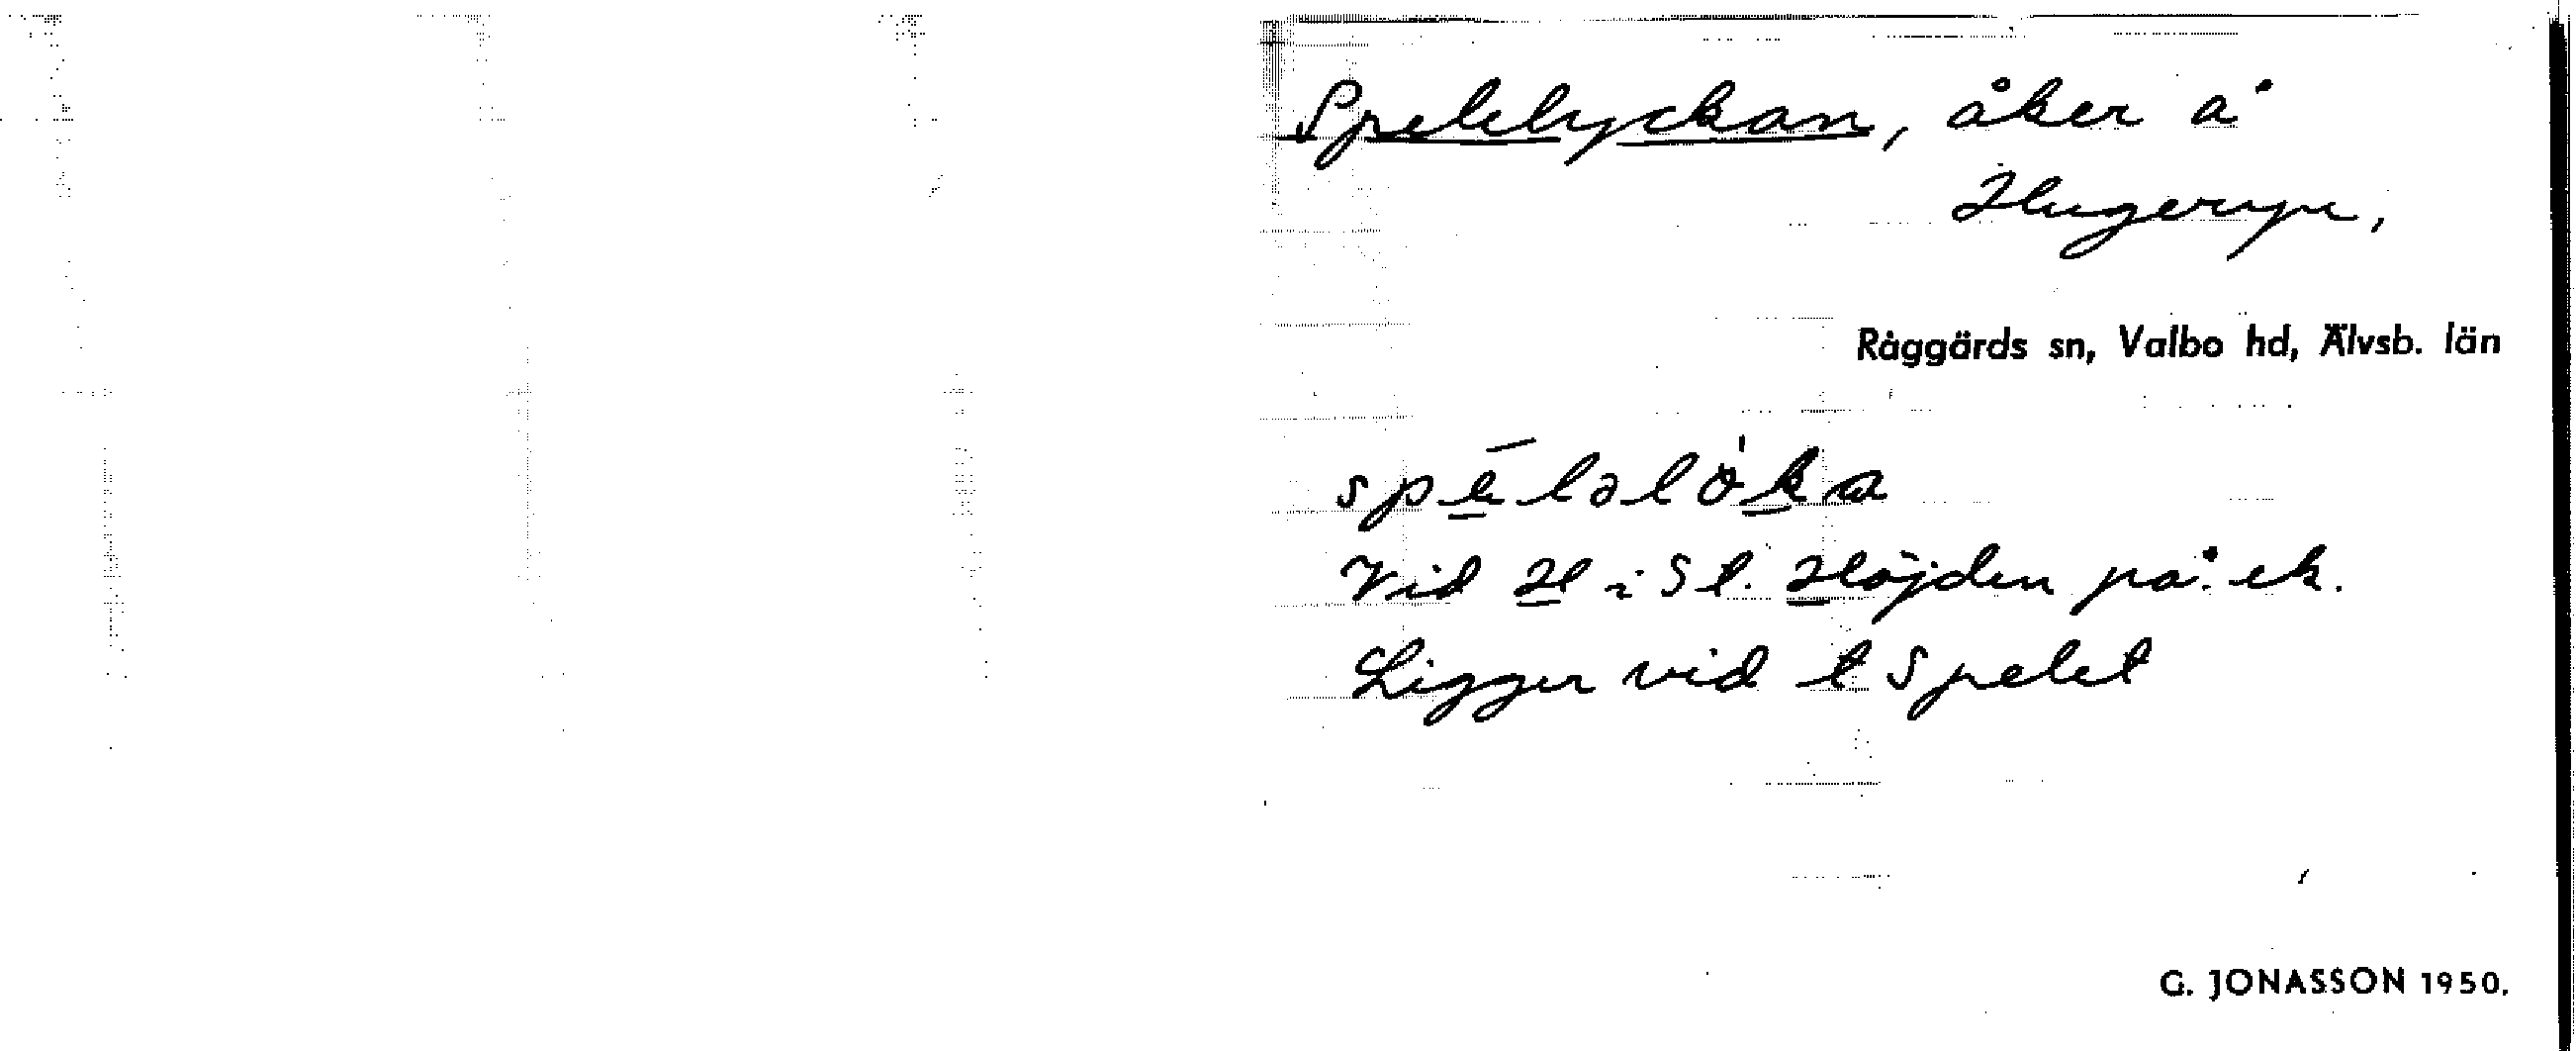 Spelelyckan, åker å
Hugeryr,
Råggärds sn, Valbo hd, Älvsb. län
spéləlök̀a
Vid H i St. Höjden på: ek.
Ligger vid t Spelet
G. JONASSON 1950.